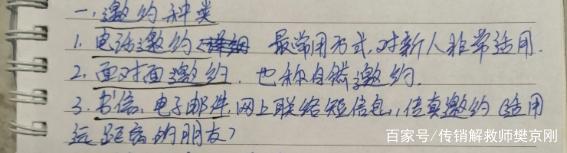 一、邀约种类
1. 电话邀约 最常用方式,对新人非常适用.
2. 面对面邀约. 也称自然邀约.
3. 书信、电子邮件,网上联络短信息,传真邀约(适用
远距离的朋友)
百家号/传销解救师樊京刚